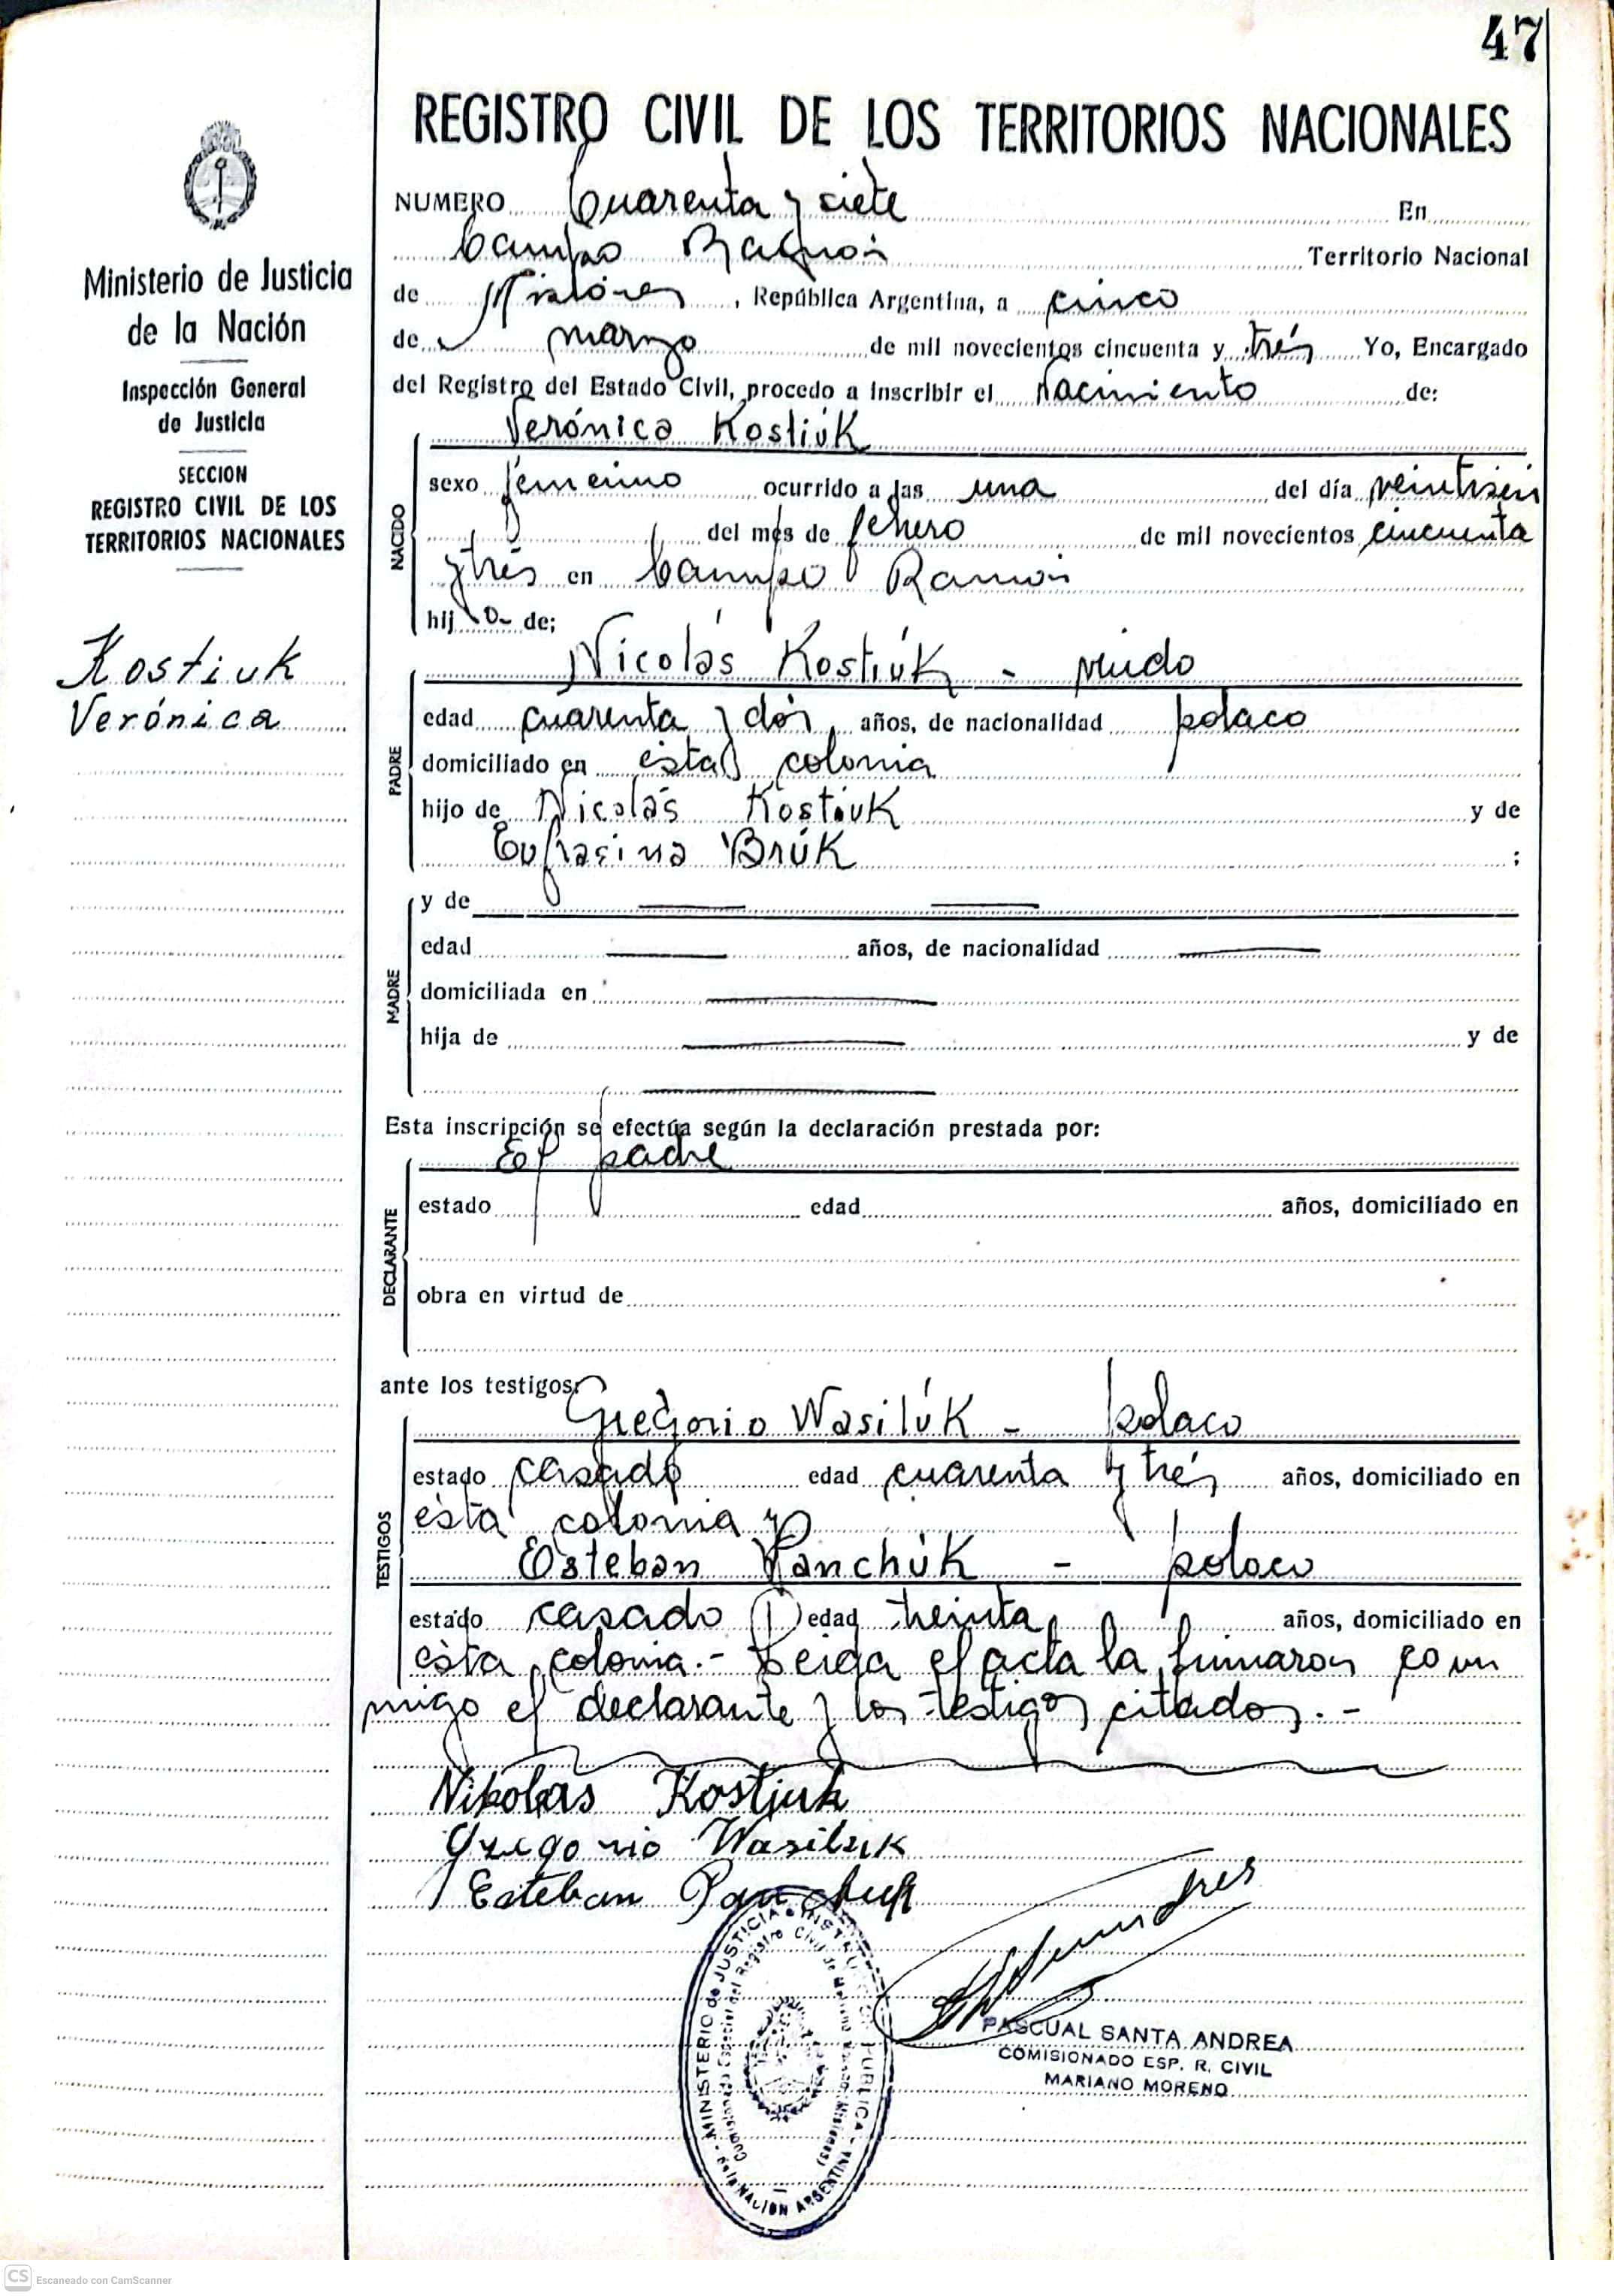 47
REGISTRO CIVIL DE LOS TERRITORIOS NACIONALES
NUMERO Cuarenta y siete En
Campo Ramón Territorio Nacional
de Misiones, República Argentina, a cinco
de marzo de mil novecientos cincuenta y trés Yo, Encargado
del Registro del Estado Civil, procedo a inscribir el Nacimiento de:
Verónica Kostiúk
NACIDO
sexo femenino ocurrido a las una del día veintiseis
del més de febrero de mil novecientos cincuenta
y trés en Campo Ramón
hij a de;
Nicolás Kostiúk - viudo
PADRE
edad cuarenta y dós años, de nacionalidad polaco
domiciliado en ésta colonia
hijo de Nicolás Kostiuk y de
Eufrasina Brúk ;
MADRE
y de
edad años, de nacionalidad
domiciliada en
hija de y de
Esta inscripción se efectúa según la declaración prestada por:
El padre
DECLARANTE
estado edad años, domiciliado en
obra en virtud de
ante los testigos:
Gregorio Wasilúk - polaco
TESTIGOS
estado casado edad cuarenta y trés años, domiciliado en
ésta colonia y
Esteban Panchúk - polaco
estado casado edad treinta años, domiciliado en
ésta colonia.- Leida el acta la firmaron con
migo el declarante y los testigos citados.-
Nikolas Kostjuk
Gregorio Wasiluk
Esteban Panchuk
PASCUAL SANTA ANDREA
COMISIONADO ESP. R. CIVIL
MARIANO MORENO
MINISTERIO de JUSTICIA
de la NACION ARGENTINA
Ministerio de Justicia
de la Nación
Inspección General
de Justicia
SECCION
REGISTRO CIVIL DE LOS
TERRITORIOS NACIONALES
Kostiuk
Verónica
CS Escaneado con CamScanner